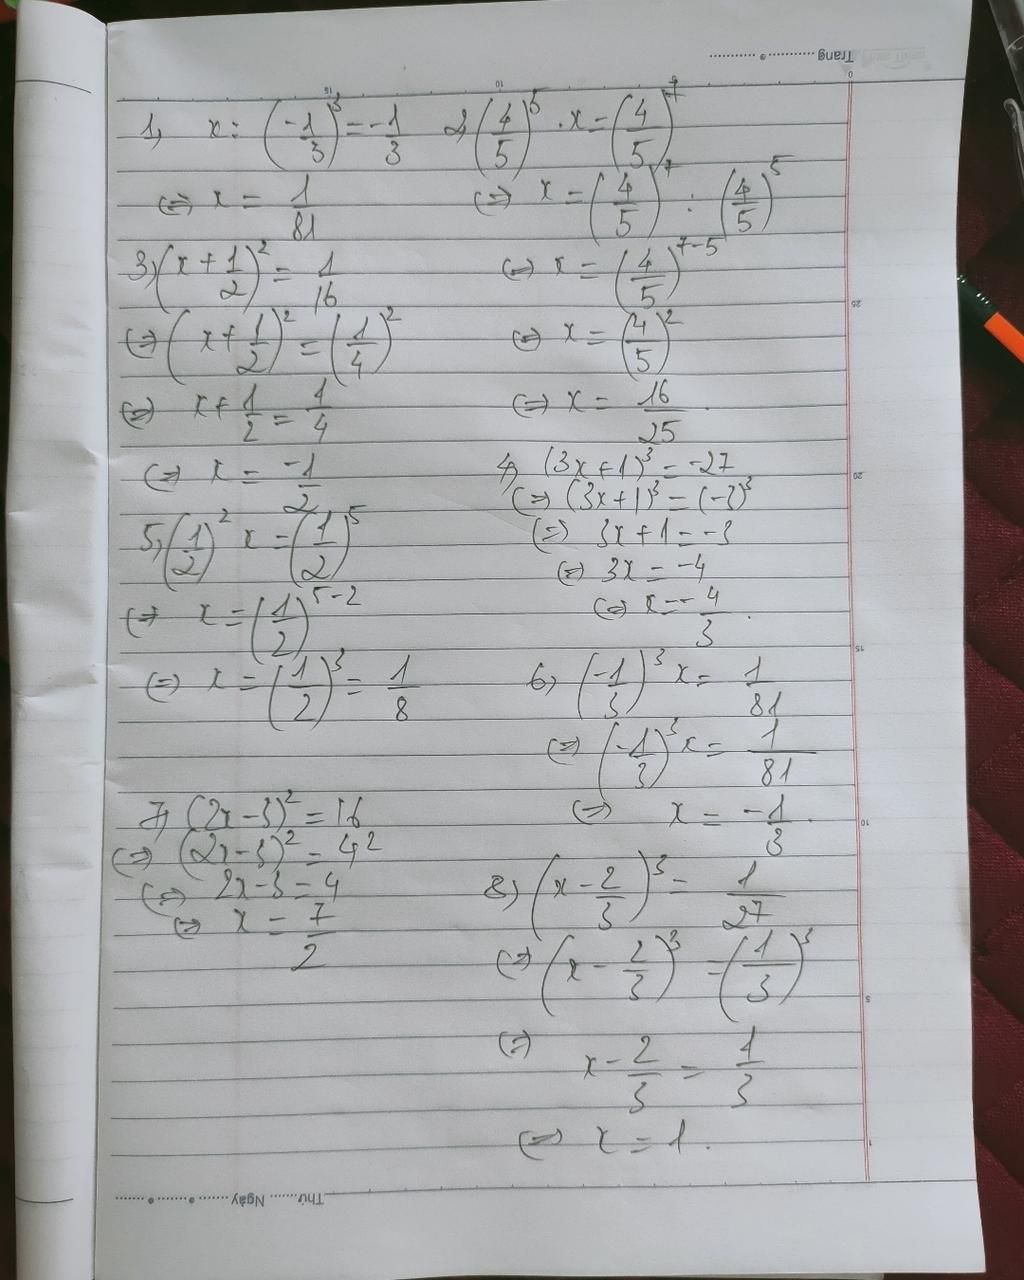 1, x : (-1/3)³ = -1/3
⇔ x = 1/81
2, (4/5)⁵ . x = (4/5)⁷
⇔ x = (4/5)⁷ : (4/5)⁵
⇔ x = (4/5)⁷⁻⁵
⇔ x = (4/5)²
⇔ x = 16/25.
3, (x + 1/2)² = 1/16
⇔ (x + 1/2)² = (1/4)²
⇔ x + 1/2 = 1/4
⇔ x = -1/2
4, (3x + 1)³ = -27
⇔ (3x + 1)³ = (-3)³
⇔ 3x + 1 = -3
⇔ 3x = -4
⇔ x = -4/3.
5, (1/2)² x = (1/2)⁵
⇔ x = (1/2)⁵⁻²
⇔ x = (1/2)³ = 1/8
6, (-1/3)³ x = 1/81
⇔ (-1/3)³ x = 1/81
⇔ x = -1/3.
7, (2x - 3)² = 16
⇔ (2x - 3)² = 4²
⇔ 2x - 3 = 4
⇔ x = 7/2
8, (x - 2/3)³ = 1/27
⇔ (x - 2/3)³ = (1/3)³
⇔ x - 2/3 = 1/3
⇔ x = 1.
Trang
Thứ Ngày